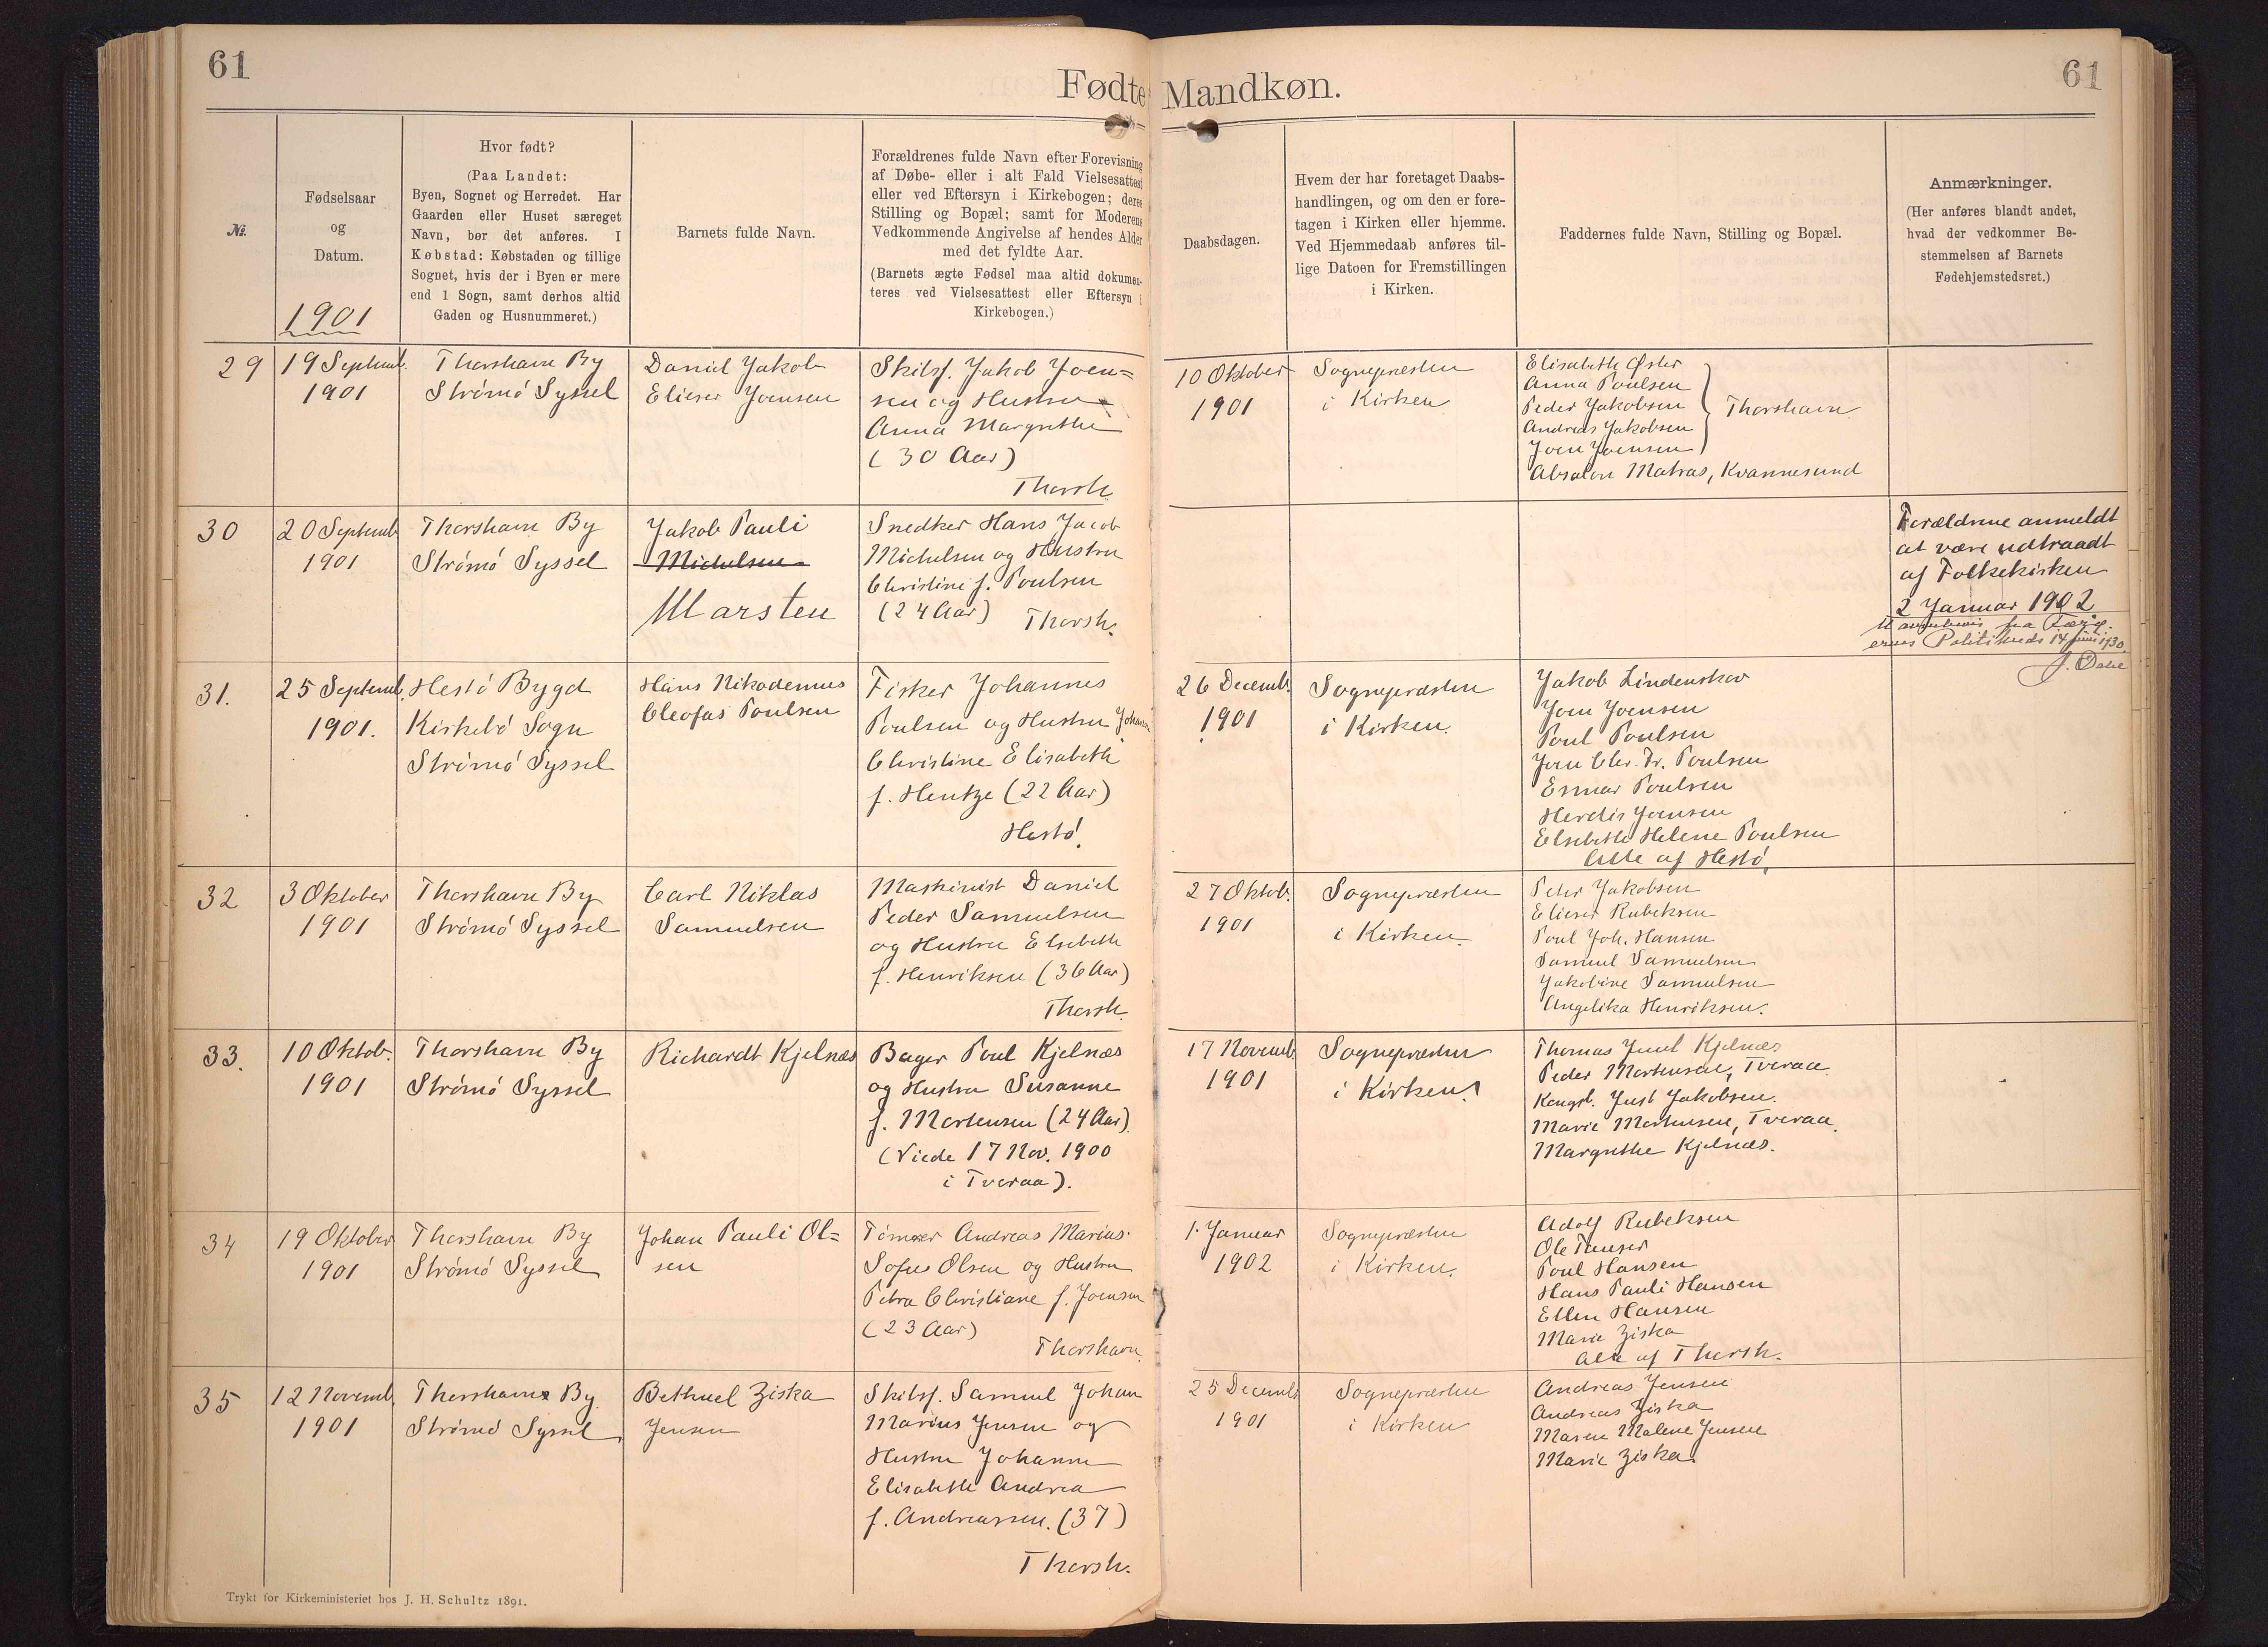 61
Fødte Mandkøn.
61
№.
Fødselsaar
og
Datum.
1901
Hvor født?
(Paa Landet:
Byen, Sognet og Herredet. Har
Gaarden eller Huset særeget
Navn, bør det anføres. I
Købstad: Købstaden og tillige
Sognet, hvis der i Byen er mere
end 1 Sogn, samt derhos altid
Gaden og Husnummeret.)
Barnets fulde Navn.
Forældrenes fulde Navn efter Forevisning
af Døbe- eller i alt Fald Vielsesattest
eller ved Eftersyn i Kirkebogen; deres
Stilling og Bopæl; samt for Moderens
Vedkommende Angivelse af hendes Alder
med det fyldte Aar.
(Barnets ægte Fødsel maa altid dokumen-
teres ved Vielsesattest eller Eftersyn i
Kirkebogen.)
Daabsdagen.
Hvem der har foretaget Daabs-
handlingen, og om den er fore-
tagen i Kirken eller hjemme.
Ved Hjemmedaab anføres til-
lige Datoen for Fremstillingen
i Kirken.
Faddernes fulde Navn, Stilling og Bopæl.
Anmærkninger.
(Her anføres blandt andet,
hvad der vedkommer Be-
stemmelsen af Barnets
Fødehjemstedsret.)
29
19 Septemb.
1901
Thorshavn By
Strømø Syssel
Daniel Jakob
Elieser Joensen
Skilsf. Jakob Joen=
sen og Hustru
Anna Margrethe
(30 Aar)
Thorsh.
10 Oktober
1901
Sognepræsten
i Kirken
Elisabeth Øster
Anna Poulsen
Peder Jakobsen
Andreas Jakobsen
Joen Joensen
Thorshavn
Absalon Matras, Kvannesund
30
20 Septemb.
1901
Thorshavn By
Strømø Syssel
Jakob Pauli
Michelsen
Marsten
Snedker Hans Jacob
Michelsen og Hustru
Christine f. Poulsen
(24 Aar)
Thorsh.
Forældrene anmeldt
at være udtraadt
af Folkekirken
2 Januar 1902
Navnebevis fra Færø-
ernes Politikreds 14 juni 1930.
J. Dahl
31.
25 Septemb.
1901.
Hestø Bygd
Kirkebø Sogn
Strømø Syssel
Hans Nikodemus
Cleofas Poulsen
Fisker Johannes
Poulsen og Hustru Johanne
Christine Elisabeth
f. Hentze (22 Aar)
Hestø.
26 Decemb.
1901
Sognepræsten
i Kirken.
Jakob Lindenskov
Joen Joensen
Poul Poulsen
Joen Chr. Dr. Poulsen
Esmar Poulsen
Herdis Joensen
Elsebeth Helene Poulsen
Alle af Hestø,
32
3 Oktober
1901
Thorshavn By
Strømø Syssel
Carl Niklas
Samuelsen
Maskinist Daniel
Peder Samuelsen
og Hustru Elsebeth
f. Henriksen (36 Aar)
Thorsh.
27 Oktob.
1901
Sognepræsten
i Kirken.
Peter Jakobsen
Elieser Rubeksen
Poul Joh. Hansen
Samuel Samuelsen
Jakobine Samuelsen
Angelika Henriksen.
33.
10 Oktob.
1901
Thorshavn By
Strømø Syssel
Richardt Kjelnæs
Bager Poul Kjelnæs
og Hustru Susanne
f. Mortensen (24 Aar).
(Viede 17 Nov. 1900
i Tveraa).
17 Novemb.
1901
Sognepræsten
i Kirken.
Thomas Juul Kjelnæs
Peder Mortensen, Tveraa.
Kongsb. Just Jakobsen.
Marie Mortensen, Tveraa.
Margrethe Kjelnæs.
34
19 Oktober
1901
Thorshavn By
Strømø Syssel
Johan Pauli Ol=
sen
Tømrer Andreas Marius
Sofus Olsen og Hustru
Petra Christiane f. Joensen
(23 Aar)
Thorshavn.
1. Januar
1902
Sognepræsten
i Kirken.
Adolf Rubeksen
Ole
Poul Hansen
Hans Pauli Hansen
Ellen Hansen
Maria Ziska
Alle af Thorsh.
35
12 Novemb.
1901
Thorshavn By
Strømø Syssel
Bethuel Ziska
Jensen
Skilsf. Samuel Johan
Marius Jensen og
Hustru Johanne
Elisabeth Andrea
f. Andreassen. (37)
Thorsh.
25 Decemb.
1901
Sognepræsten
i Kirken
Andreas Jensen
Andreas Ziska
Maren Malene Jensen
Marie Ziska.
Trykt for Kirkeministeriet hos J. H. Schultz 1891.